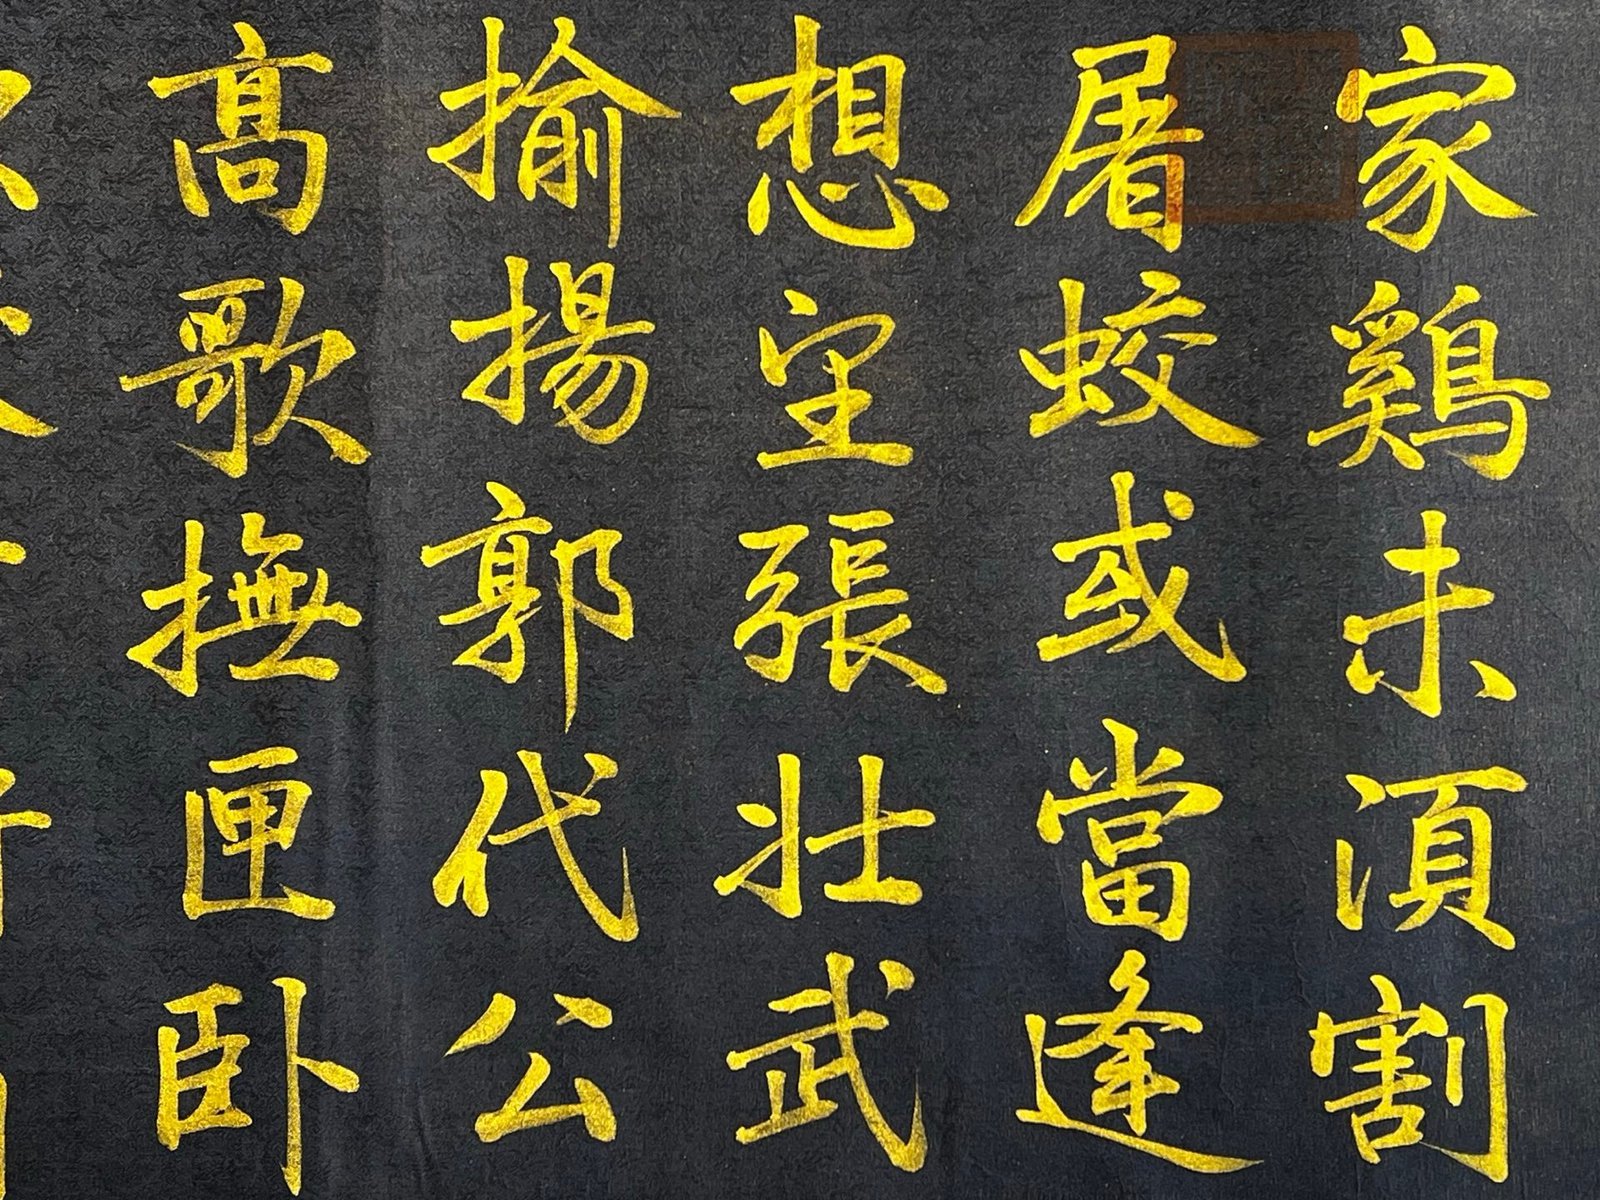 家鷄未須割
屠蛟或當逢
想望張壯武
揄揚郭代公
高歌撫匣卧